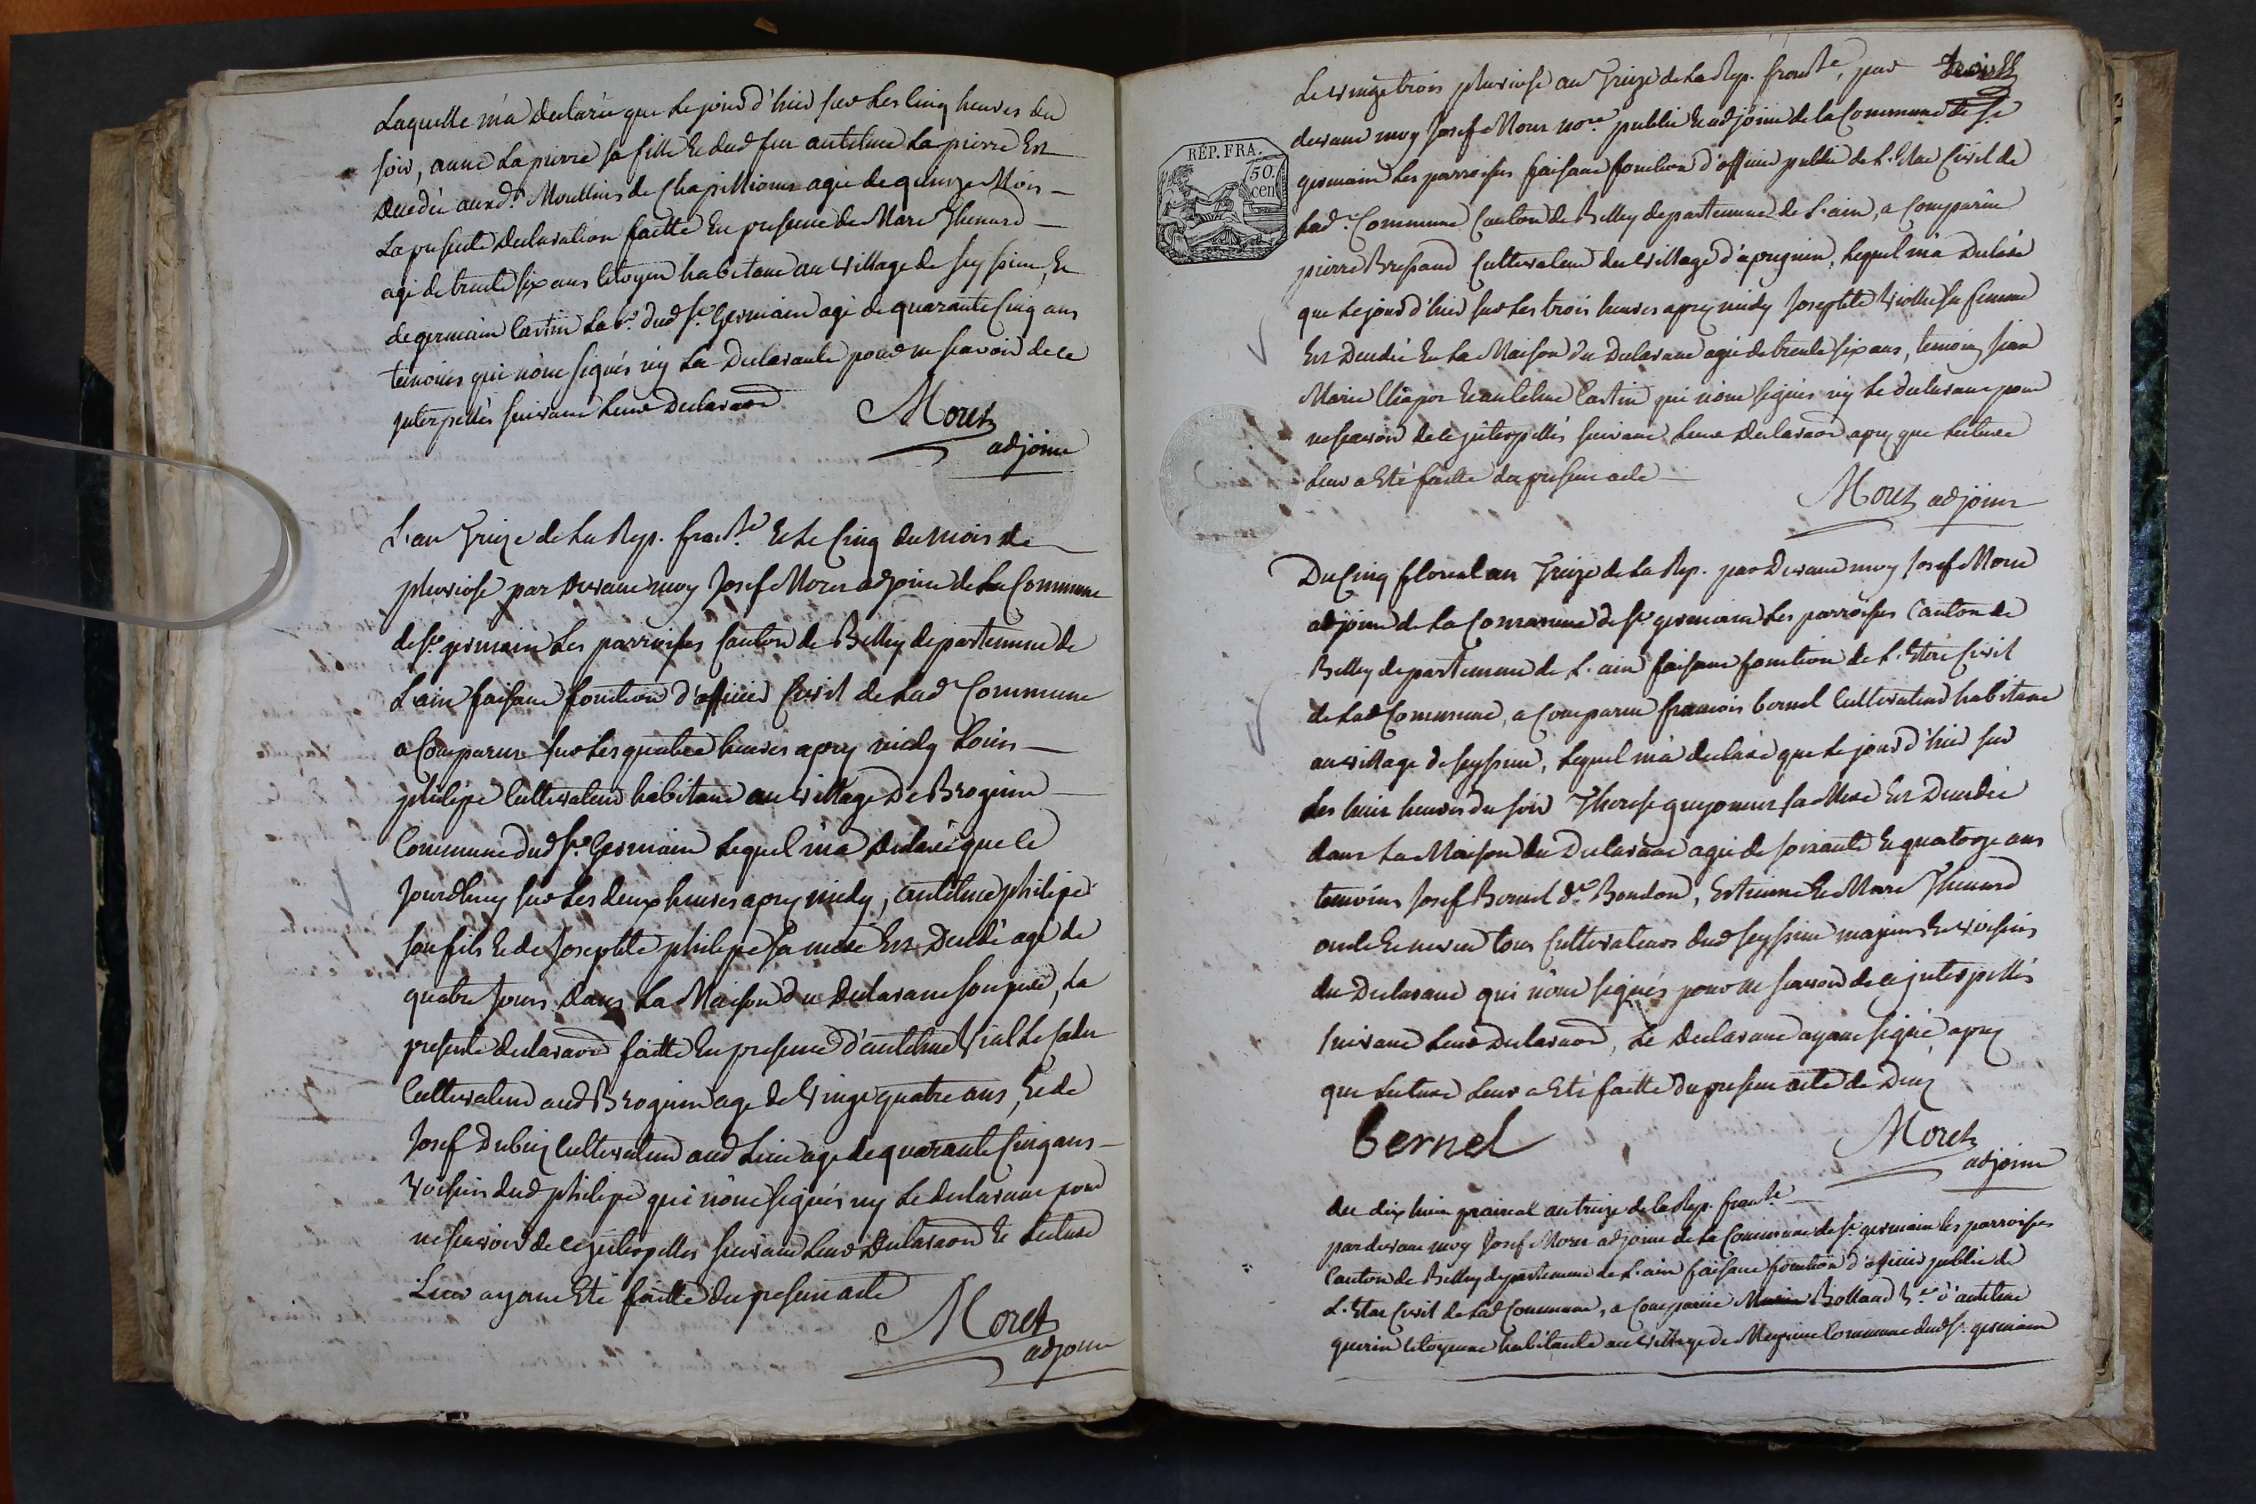 Laquelle m'a declaré que le jour d'hier sur les cinq heures du
soir, anne Lapierre sa fille et dud feu antelme Lapierre Est
decedée auxd.s Moullins de Chapillioux agée de quinze Mois
La presente declaration faitte en presence de Marc Thenard
agé de trente six ans Citoyen habitant au village de seyssieu, et
de germain Castin dud St. Germain agé de quarante Cinq ans
temoins qui n'ont signés n'y La Declarante pour ne scavoir de ce
jnterpellés suivant leurs Declaraon
Moret
adjoint
L'an Treize de La Rep. fran.se et le Cinq du Mois de
pluviose par devant moy Josef Moret adjoint de La Commune
de St. germain Les parroisses Canton de Belley departement de
L'ain faisant fonction d'officier Civil de Lad Commune
a Comparu sur les quatre heures apres midy Louis
philipe Cultivateur habitant au village De Brognin
Commune dud St. Germain Lequel m'a declaré que ce
jourdhuy sur les deux heures apres midy, antelme philipe
son fils et de Josephte philipe sa mere Est Decedé agé de
quatre Jours dans La Maison du Declarant son pere, La
presente declaraon faitte en presence d'antelme Vial Le Cadet
Cultivateur aud Brognin agé de Vingt quatre ans, et de
Josef Dubuis Cultivateur aud Lieu agé de quarante Cinq ans
Voisins dud philipe qui n'ont signés ny Le declarant pour
ne scavoir de ce jnterpellés suivant Leurs Declaraon et Lecture
Leur ayant Eté faitte du present acte
Moret
adjoint
Le vingt trois pluviose an Treize de La Rep. fran.se, par
devant moy Josef Moret no.re public et adjoint de la Commune de St.
germain Les parroisses faisant fonction d'officier public de L'Etat Civil de
Lad.e Commune Canton de Belley departement de L'ain, a Comparu
RÉP. FRA.
50.
cen
pierre Bressand Cultivateur du village d'aprignin, Lequel m'a Declaré
que le jour d'hier sur les trois heures apres midy Josephte Viollet sa femme
Est Decedée En La Maison du Declarant agée de trente six ans, temoins jean
Marie Chapot et antelme Castin qui n'ont signés n'y Le declarant pour
ne scavoir de ce jnterpellés suivant Leurs Declaraon apres que Lecture
Leur a Eté faitte du present acte
Moret adjoint
Du Cinq floreal an Treize de La Rep. par Devant moy Josef Moret
adjoint de La Commune de St. germain Les parroisses Canton de
Belley departement de L'ain faisant fonction de L'Etat Civil
de Lad Commune, a Comparu francois bernel Cultivateur habitant
au village de seyssieu, Lequel m'a declaré que le jour d'hier sur
Les huit heures du soir Therese guyonnet sa Mere Est Decedée
dans La Maison du Declarant agée de soixante et quatorze ans
temoins Josef Bernel d.t Bondon, Estienne et Marc Thenard
oncle et neveu tous Cultivateurs dud seyssieu majeurs et voisins
du Declarant qui n'ont signés pour ne scavoir de ce jnterpellés
suivant Leurs Declaraon, Le Declarant ayant signé apres
que Lecture Leur a Eté faitte du present acte de Deces
bernel
Moret
adjoint
du dix huit prairial an treize de la Rep. fran.se
par devant moy Josef Moret adjoint de La Commune de St. germain les parroisses
Canton de Belley departement de L'ain faisant fonction d'officier public de
L'Etat Civil de Lad Commune, a Comparue Bolland V.e d'antelme
guerin Citoyenne habitante au village de Meyrieu Commune dud St. germain